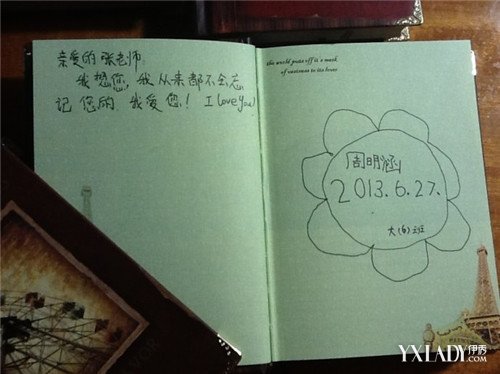 亲爱的张老师
我想您,我从来都不会忘
记您的 我爱您! I love you
the world puts off its mask
of vastness to its lover
周明涵
2013.6.27.
大(6)班
YXLADY伊秀
.COM